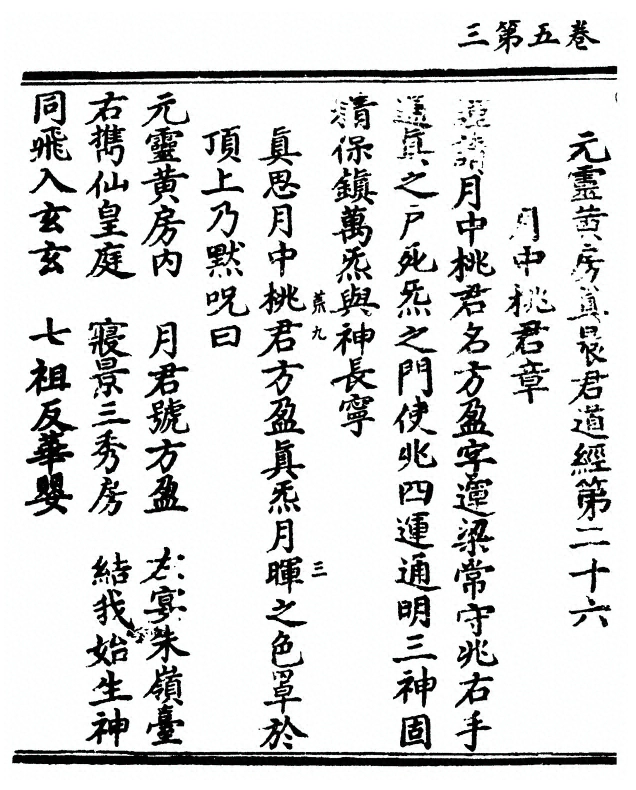 卷五第三
元靈黃房真晨君道經第二十六
月中桃君章
請月中桃君名方盈字運梁常守兆右手
真之戶死炁之門使兆四運通明三神固
保鎮萬炁與神長寧
菜九 三
眞思月中桃君方盈眞炁月暉之色罩於
頂上乃默呪曰
元靈黃房內 月君號方盈 左宴朱嶺臺
右攜仙皇庭 寢景三秀房 結我始生神
同飛入玄玄 七祖反華嬰